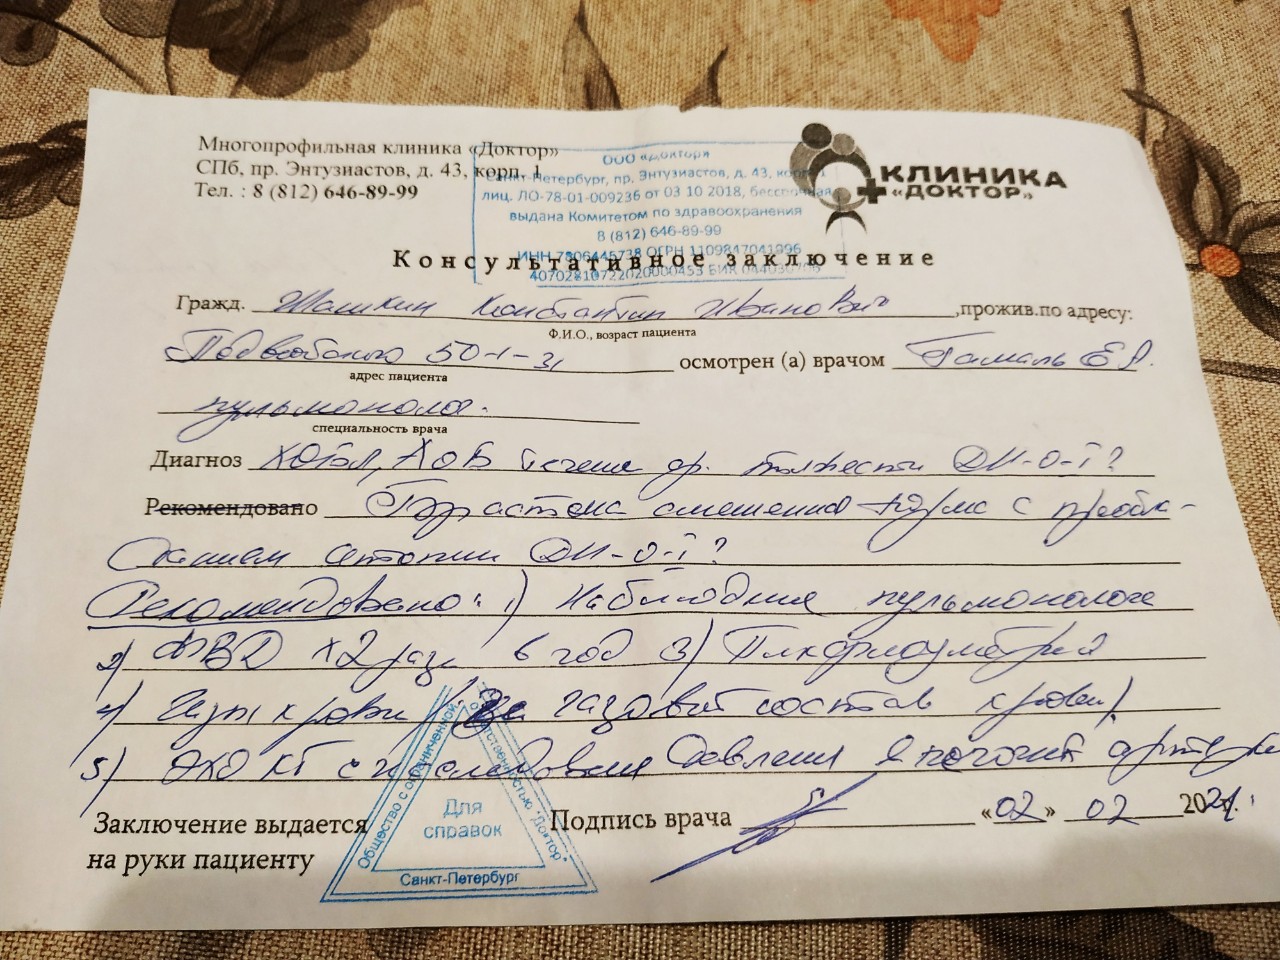 Многопрофильная клиника «Доктор»
СПб, пр. Энтузиастов, д. 43, корп. 1
Тел. : 8 (812) 646-89-99
ООО «Доктор»
Санкт-Петербург, пр. Энтузиастов, д. 43, корп. 1
лиц. ЛО-78-01-009236 от 03 10 2018, бессрочная
выдана Комитетом по здравоохранения
8 (812) 646-89-99
ИНН 7806445738 ОГРН 1109847041996
КЛИНИКА
«ДОКТОР»
Консультативное заключение
Гражд. Константин Иванович ,прожив.по адресу:
Ф.И.О., возраст пациента
50-1-31 осмотрен (а) врачом Гамаль Е.
адрес пациента
пульмонолог.
специальность врача
Диагноз ХОБЛ, течение ср. тяжести ДН-0-I?
Рекомендовано смешенная форма с преобла-
данием атопии ДН-0-I?
Рекомендовано: 1) Наблюдение пульмонолога
2) ФВД х2 раза в год 3)
4) крови (на газовый состав крови)
5) ЭХО КГ с исследованием давления в легочной артерии
Общество с ограниченной ответственностью "Доктор"
Для
справок
Санкт-Петербург
Заключение выдается
на руки пациенту
Подпись врача «02» 02 2021.